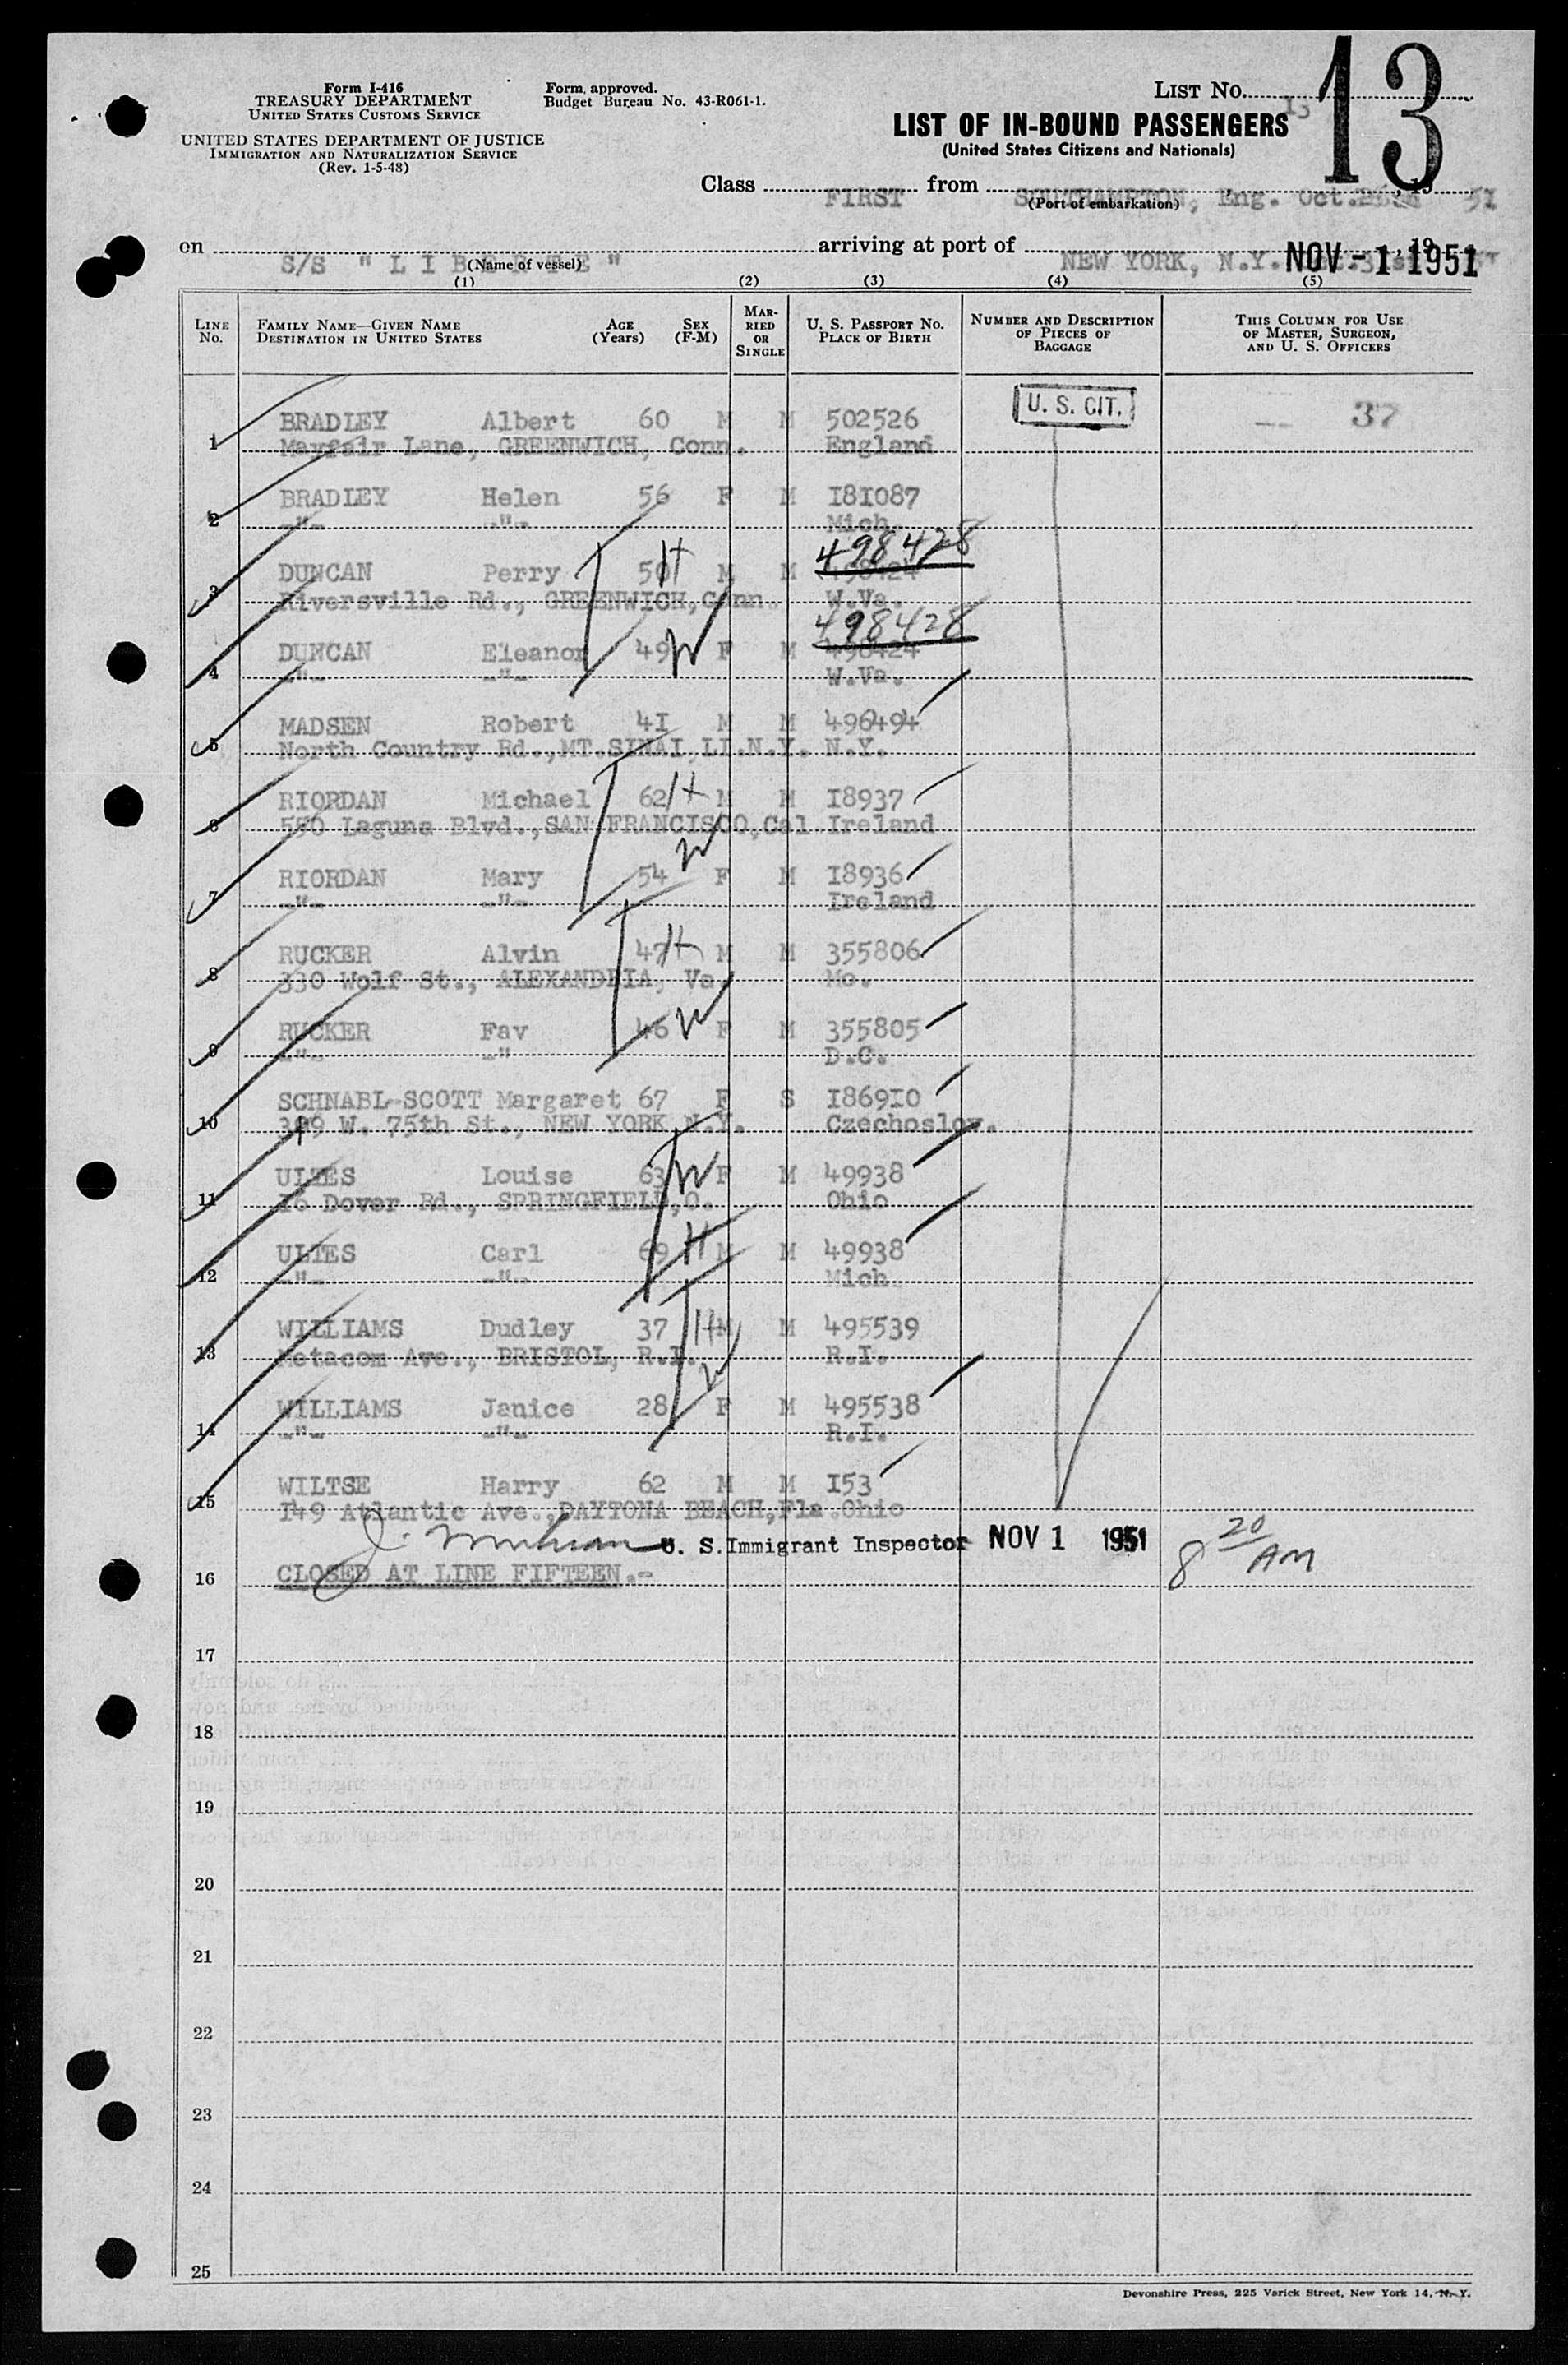 Form I-416
TREASURY DEPARTMENT
UNITED STATES CUSTOMS SERVICE
UNITED STATES DEPARTMENT OF JUSTICE
IMMIGRATION AND NATURALIZATION SERVICE
(Rev. 1-5-48)
Form approved.
Budget Bureau No. 43-R061-1.
LIST NO. 13
13
LIST OF IN-BOUND PASSENGERS
(United States Citizens and Nationals)
Class FIRST from SOUTHAMPTON, Eng. Oct. , 19 51
(Port of embarkation)
on S/S " L I B E R T E " arriving at port of NEW YORK, N.Y. NOV - 1 1951
(Name of vessel)
(1) (2) (3) (4) (5)
LINE NO. FAMILY NAME—GIVEN NAME DESTINATION IN UNITED STATES AGE (Years) SEX (F-M) MARRIED OR SINGLE U. S. PASSPORT NO. PLACE OF BIRTH NUMBER AND DESCRIPTION OF PIECES OF BAGGAGE THIS COLUMN FOR USE OF MASTER, SURGEON, AND U. S. OFFICERS
1 BRADLEY Albert 60 M M 502526 U. S. CIT. -- 37
Mayfair Lane, GREENWICH, Conn. England
2 BRADLEY Helen 56 F M I81087
-"- -"- Mich.
498428
3 DUNCAN Perry 50 H M M 498424
Riversville Rd., GREENWICH, Conn. W.Va.
498428
4 DUNCAN Eleanor 49 W F M 498424
-"- -"- W.Va.
5 MADSEN Robert 4I M M 496494
North Country Rd.,MT.SINAI,LI.N.Y. N.Y.
6 RIORDAN Michael 62 H M M I8937
550 Laguna Blvd.,SAN FRANCISCO,Cal Ireland
7 RIORDAN Mary 54 W F M I8936
-"- -"- Ireland
8 RUCKER Alvin 47 H M M 355806
330 Wolf St., ALEXANDRIA, Va. Mo.
9 RUCKER Fay 46 W F M 355805
-"- -" D.C.
10 SCHNABL-SCOTT Margaret 67 F S I869I0
309 W. 75th St., NEW YORK N.Y. Czechoslov.
11 ULTES Louise 63 W F M 49938
I6 Dover Rd., SPRINGFIELD,O. Ohio
12 ULTES Carl 69 H M M 49938
-"- -"- Mich.
13 WILLIAMS Dudley 37 H M M 495539
Metacom Ave., BRISTOL, R.I. W R.I.
14 WILLIAMS Janice 28 F M 495538
-"- -"- R.I.
15 WILTSE Harry 62 M M I53
I49 Atlantic Ave.,DAYTONA BEACH,Fla.Ohio
U. S. Immigrant Inspector NOV 1 1951 8 20 AM
16 CLOSED AT LINE FIFTEEN.-
17
18
19
20
21
22
23
24
25
Devonshire Press, 225 Varick Street, New York 14, N. Y.